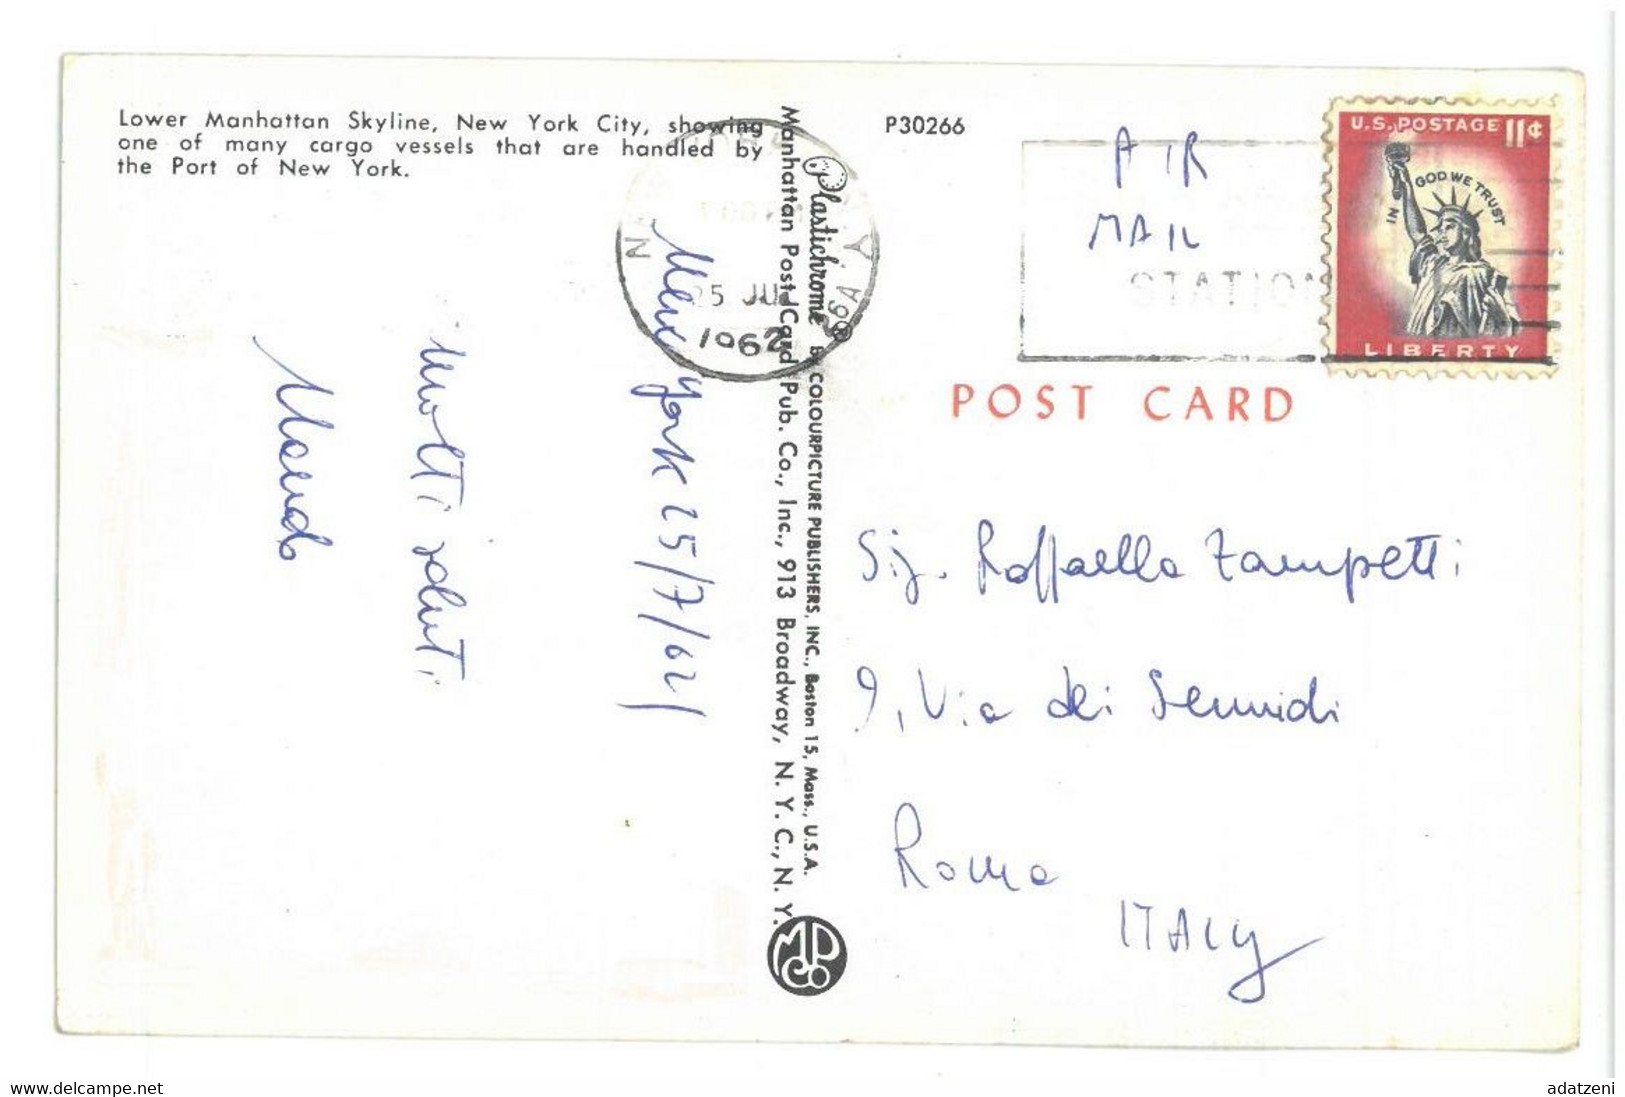 Lower Manhattan Skyline, New York City, showing
one of many cargo vessels that are handled by
the Port of New York.
New York 25/7/62
Molti saluti
Plastichrome ® by COLOURPICTURE PUBLISHERS, INC., Boston 15, Mass., U.S.A.
Manhattan Post Card Pub. Co., Inc., 913 Broadway, N. Y. C., N. Y.
MPC Co
P30266
25 JUL
1962
AIR
MAIL
STATION
U.S. POSTAGE 11¢
IN GOD WE TRUST
LIBERTY
POST CARD
Sig. Raffaella Zampetti
9, Via dei Sennidi
Roma
ITALY
www.delcampe.net
adatzeni